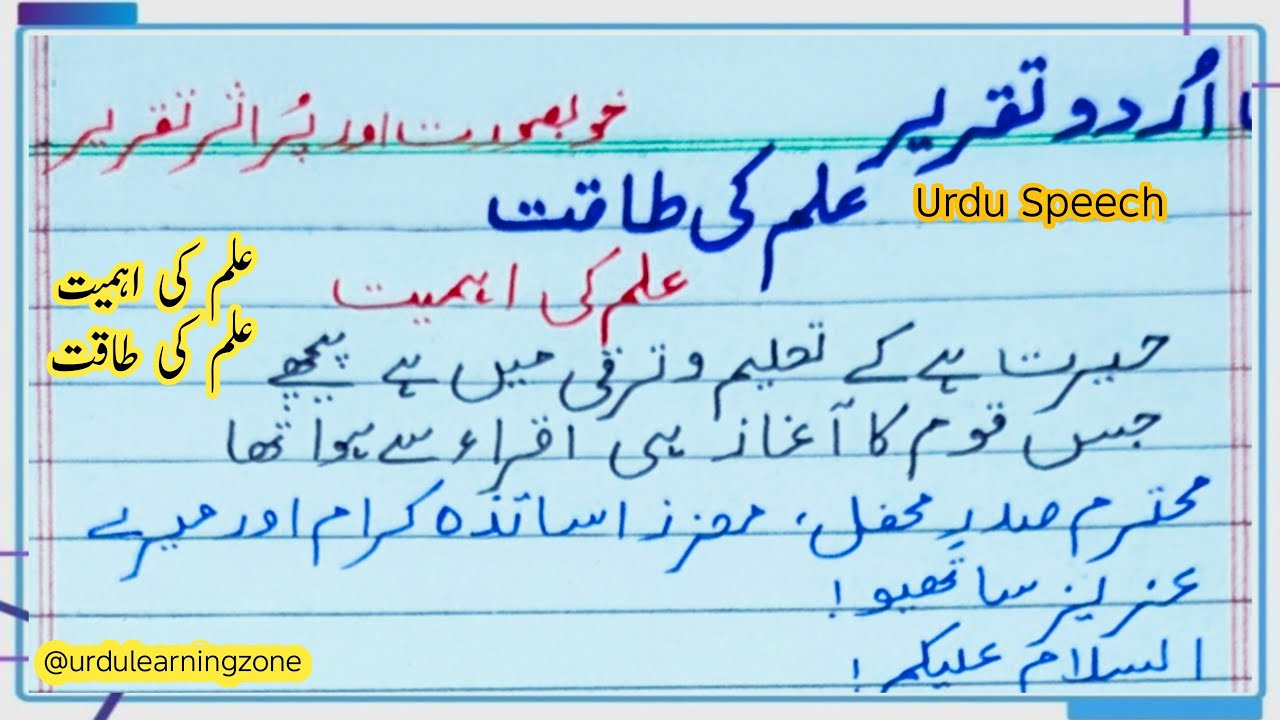 اُردو تقریر
خوبصورت اور پُر اثر تقریر
علم کی طاقت
Urdu Speech
علم کی اہمیت
علم کی اہمیت
علم کی طاقت
حیرت ہے کے تعلیم و ترقی میں ہے پیچھے
جس قوم کا آغاز ہی اقراء سے ہوا تھا
محترم صدرِ محفل، معزز اساتذہ کرام اور میرے
عزیز ساتھیو!
السلام علیکم!
@urdulearningzone